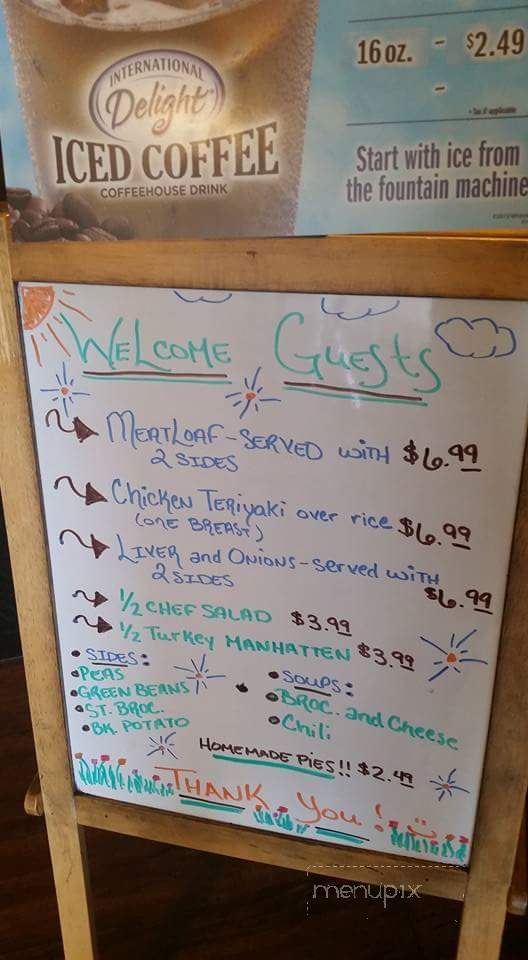 16 oz. - $2.49
-
INTERNATIONAL
Delight
ICED COFFEE
COFFEEHOUSE DRINK
* Tax if applicable
Start with ice from
the fountain machine
WELCOME GUESTS
MEATLOAF - SERVED WITH $6.99
2 SIDES
Chicken TERiyaki over rice $6.99
(ONE BREAST)
LIVER and ONIONS - served WITH
2 SIDES $6.99
1/2 CHEF SALAD $3.99
1/2 Turkey MANHATTEN $3.99
• SIDES:
• PEAS
• GREEN BEANS
• ST. BROC.
• BK. POTATO
• SOUPS:
• BROC. and Cheese
• Chili
HOMEMADE PIES!! $2.49
THANK You!
menupix